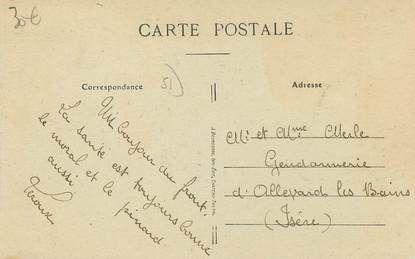 30€
CARTE POSTALE
Correspondance
51)
Adresse
Un bonjour du front.
La santé est toujours bonne
le moral et le pinard
aussi
Mr et Mme Merle
Gendarmerie
d'Allevard les Bains
(Isère)